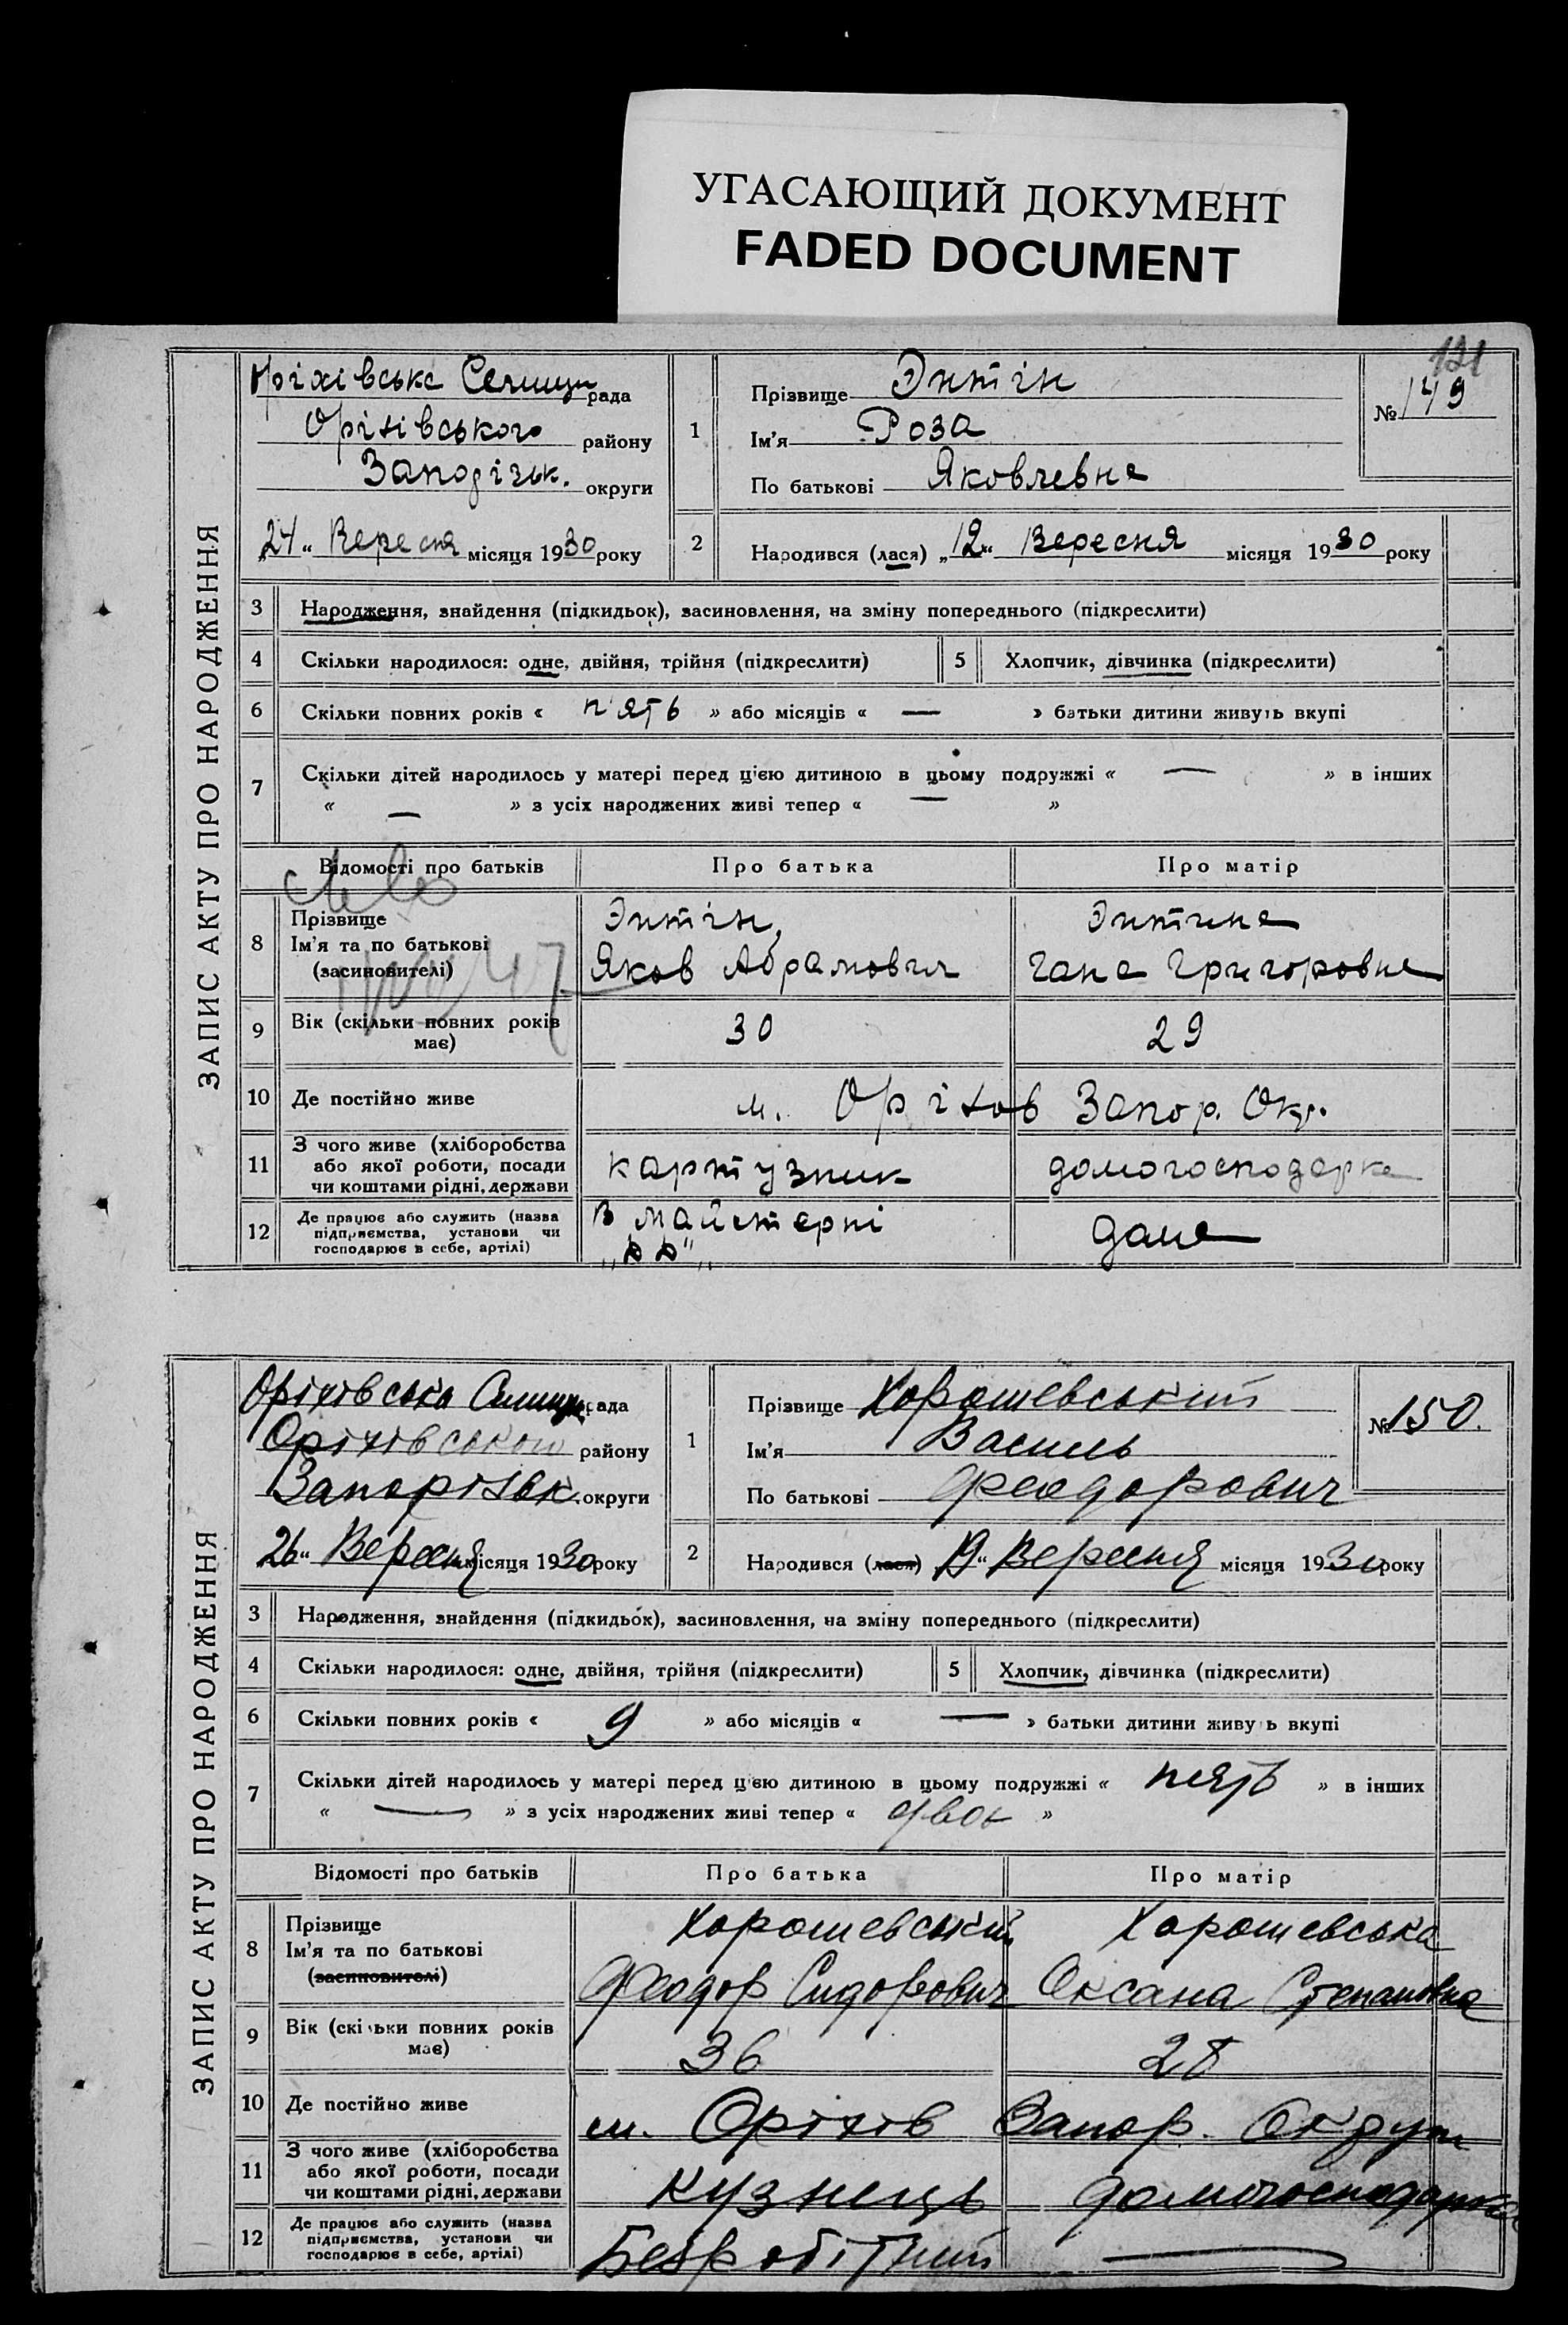 УГАСАЮЩИЙ ДОКУМЕНТ
FADED DOCUMENT
131
ЗАПИС АКТУ ПРО НАРОДЖЕННЯ
Оріхівська Селищн рада
Оріхівського району
Запорізьк. округи
„24“ Вересня місяця 1930 року
1
Прізвище Энтін
Ім'я Роза
По батькові Яковлевна
№ 149
2
Народився (лася) „12“ Вересня місяця 1930 року
3 Народження, знайдення (підкидьок), засиновлення, на зміну попереднього (підкреслити)
4 Скільки народилося: одне, двійня, трійня (підкреслити) 5 Хлопчик, дівчинка (підкреслити)
6 Скільки повних років « п'ять » або місяців « — » батьки дитини живуть вкупі
7 Скільки дітей народилось у матері перед цією дитиною в цьому подружжі « — » в інших
« — » з усіх народжених живі тепер « — »
Відомості про батьків Про батька Про матір
8 Прізвище
Ім'я та по батькові
(засиновителі)
Энтін,
Яков Абрамович
Энтина
Гана Григоровна
9 Вік (скільки повних років має) 30 29
10 Де постійно живе м. Оріхов Запор. Окр.
11 З чого живе (хліборобства
або якої роботи, посади
чи коштами рідні, держави
картузник домогосподарка
12 Де працює або служить (назва
підприємства, установи чи
господарює в себе, артілі)
в майстерні
дома
ЗАПИС АКТУ ПРО НАРОДЖЕННЯ
Оріхівська Селищн рада
Оріхівського району
Запорізьк. округи
26“ Вересня місяця 1930 року
1
Прізвище Хорошевський
Ім'я Василь
По батькові Феодорович
№ 150.
2
Народився (лася) 19“ Вересня місяця 1930 року
3 Народження, знайдення (підкидьок), засиновлення, на зміну попереднього (підкреслити)
4 Скільки народилося: одне, двійня, трійня (підкреслити) 5 Хлопчик, дівчинка (підкреслити)
6 Скільки повних років « 9 » або місяців « — » батьки дитини живуть вкупі
7 Скільки дітей народилось у матері перед цією дитиною в цьому подружжі « пять » в інших
« — » з усіх народжених живі тепер « двоє »
Відомості про батьків Про батька Про матір
8 Прізвище
Ім'я та по батькові
(засиновителі)
Хорошевський
Феодор Сидорович
Хорошевська
Оксана Степановна
9 Вік (скільки повних років має) 36 28
10 Де постійно живе м. Оріхів Запор. Округи
11 З чого живе (хліборобства
або якої роботи, посади
чи коштами рідні, держави
кузнець домогосподарка
12 Де працює або служить (назва
підприємства, установи чи
господарює в себе, артілі)
Безробітний —